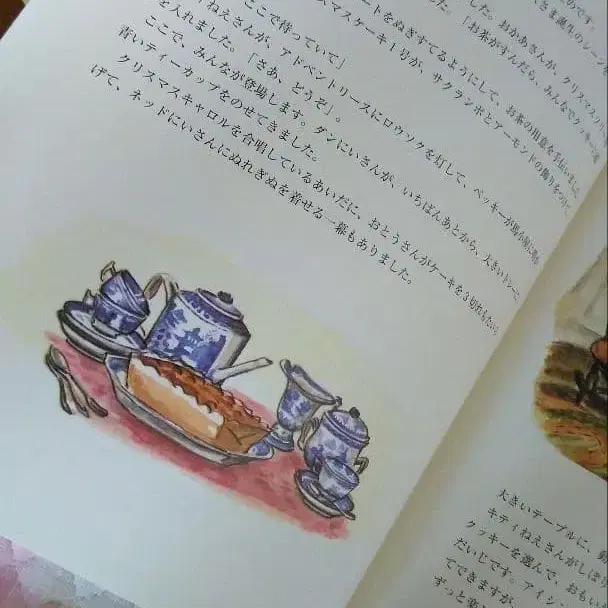 のです。
さま誕生のシーンを
ました。おかあさんが、クリスマスツリ
した。「お茶がすんだら、みんなでクッキーを
ートをぬぎすてるようにして、お茶の用意を手伝いました。
スマスケーキ1号が、サクランボとアーモンドの飾りをつけて、
ここで待っていて」
ィねえさんが、アドベントリースにロウソクを灯して、ベッキーが馬小屋に明
を入れました。「さあ、どうぞ」。
ここで、みんなが登場します。ダンにいさんが、いちばんあとから、大きいトレーに
青いティーカップをのせてきました。
クリスマスキャロルを合唱しているあいだに、おとうさんがケーキを3切れもたいら
げて、ネッドにいさんにぬれぎぬを着せる一幕もありました。
大きいテーブルに、
キティねえさんがしぼ
クッキーを選んで、おもい
だいじです。アイシ
てできますが、
ずっと